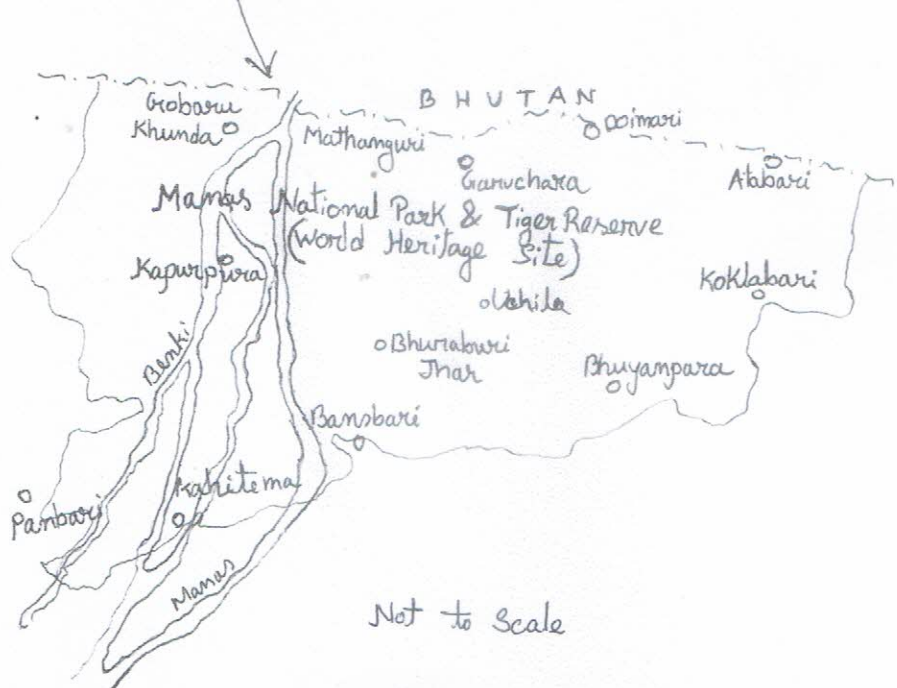 BHUTAN
Gobaru
Khunda
Mathanguri
Doimari
Garuchara
Atabari
Manas National Park & Tiger Reserve
(World Heritage Site)
Kapurpura
Koklabari
Uchila
Bhuraburi
Jhar
Bhuyanpara
Benki
Bansbari
Kahitema
Panbari
Manas
Not to Scale